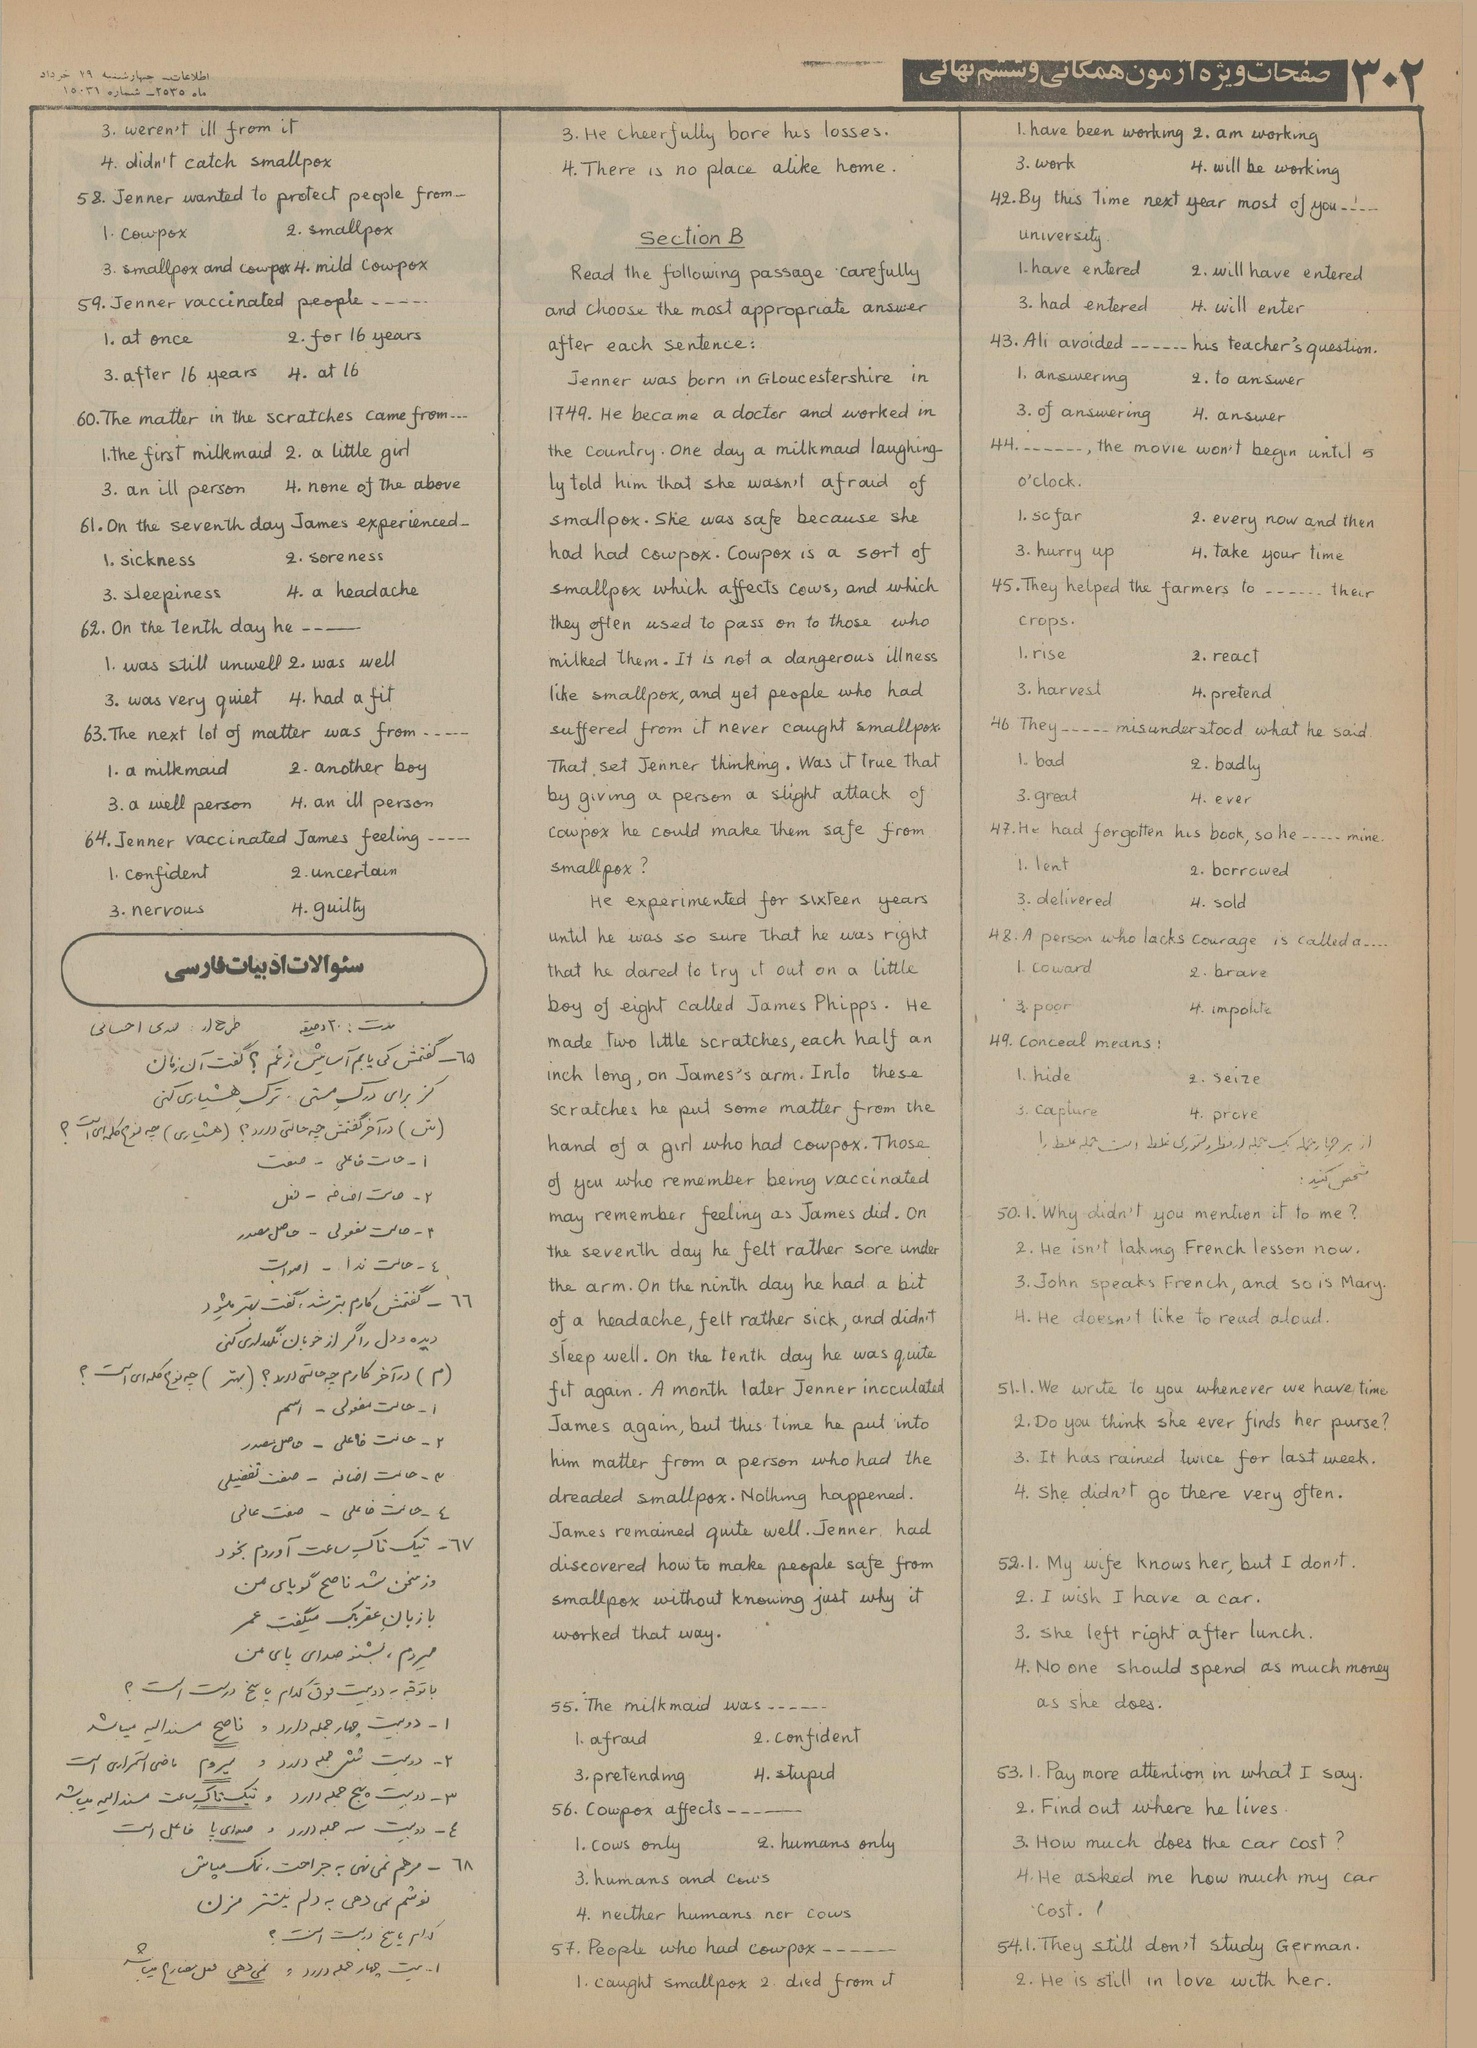 ۳۰۲ صفحات ویژه آزمون همگانی و ششم نهائی
اطلاعات - چهارشنبه ۱۹ خرداد
ماه ۲۵۳۵ - شماره ۱۵۰۳۱
1. have been working 2. am working
3. work 4. will be working
42. By this time next year most of you -----
university.
1. have entered 2. will have entered
3. had entered 4. will enter
43. Ali avoided ------ his teacher's question.
1. answering 2. to answer
3. of answering 4. answer
44. -------, the movie won't begin until 5
o'clock.
1. so far 2. every now and then
3. hurry up 4. take your time
45. They helped the farmers to ------ their
crops.
1. rise 2. react
3. harvest 4. pretend
46 They ----- misunderstood what he said.
1. bad 2. badly
3. great 4. ever
47. He had forgotten his book, so he ----- mine.
1. lent 2. borrowed
3. delivered 4. sold
48. A person who lacks courage is called a ----
1. coward 2. brave
3. poor 4. impolite
49. Conceal means:
1. hide 2. seize
3. capture 4. prove
از هر چهار جمله یک جمله از نظر دستوری غلط است جمله غلط را
مشخص کنید:
50. 1. Why didn't you mention it to me?
2. He isn't taking French lesson now.
3. John speaks French, and so is Mary.
4. He doesn't like to read aloud.
51. 1. We write to you whenever we have time
2. Do you think she ever finds her purse?
3. It has rained twice for last week.
4. She didn't go there very often.
52. 1. My wife knows her, but I don't.
2. I wish I have a car.
3. She left right after lunch.
4. No one should spend as much money
as she does.
53. 1. Pay more attention in what I say.
2. Find out where he lives.
3. How much does the car cost?
4. He asked me how much my car
cost.
54. 1. They still don't study German.
2. He is still in love with her.
3. He cheerfully bore his losses.
4. There is no place alike home.
Section B
Read the following passage carefully
and choose the most appropriate answer
after each sentence:
Jenner was born in Gloucestershire in
1749. He became a doctor and worked in
the country. One day a milkmaid laughing-
ly told him that she wasn't afraid of
smallpox. She was safe because she
had had cowpox. Cowpox is a sort of
smallpox which affects cows, and which
they often used to pass on to those who
milked them. It is not a dangerous illness
like smallpox, and yet people who had
suffered from it never caught smallpox.
That set Jenner thinking. Was it true that
by giving a person a slight attack of
cowpox he could make them safe from
smallpox?
He experimented for sixteen years
until he was so sure that he was right
that he dared to try it out on a little
boy of eight called James Phipps. He
made two little scratches, each half an
inch long, on James's arm. Into these
scratches he put some matter from the
hand of a girl who had cowpox. Those
of you who remember being vaccinated
may remember feeling as James did. On
the seventh day he felt rather sore under
the arm. On the ninth day he had a bit
of a headache, felt rather sick, and didn't
sleep well. On the tenth day he was quite
fit again. A month later Jenner inoculated
James again, but this time he put into
him matter from a person who had the
dreaded smallpox. Nothing happened.
James remained quite well. Jenner had
discovered how to make people safe from
smallpox without knowing just why it
worked that way.
55. The milkmaid was ------
1. afraid 2. confident
3. pretending 4. stupid
56. Cowpox affects -------
1. cows only 2. humans only
3. humans and cows
4. neither humans nor cows
57. People who had cowpox -------
1. caught smallpox 2. died from it
3. weren't ill from it
4. didn't catch smallpox
58. Jenner wanted to protect people from --
1. cowpox 2. smallpox
3. smallpox and cowpox 4. mild cowpox
59. Jenner vaccinated people -----
1. at once 2. for 16 years
3. after 16 years 4. at 16
60. The matter in the scratches came from ---
1. the first milkmaid 2. a little girl
3. an ill person 4. none of the above
61. On the seventh day James experienced --
1. sickness 2. soreness
3. sleepiness 4. a headache
62. On the tenth day he -----
1. was still unwell 2. was well
3. was very quiet 4. had a fit
63. The next lot of matter was from -----
1. a milkmaid 2. another boy
3. a well person 4. an ill person
64. Jenner vaccinated James feeling -----
1. confident 2. uncertain
3. nervous 4. guilty
سئوالات ادبیات فارسی
مدت: ۲۰ دقیقه طرح از: احسانی
۶۵- گفتمش کی یابم آسایش ز غم؟ گفت آن زمان
کز برای درک مستی، ترک هشیاری کنی
(ش) در آخر گفتمش چه حالتی دارد؟ (هشیاری) چه نوع کلمه‌ای است؟
۱- حالت فاعلی - صفت
۲- حالت اضافه - فعل
۳- حالت مفعولی - حاصل مصدر
۴- حالت ندا - اصوات
۶۶- گفتمش کارم بتر شد، گفت بهتر میشود
دیده و دل را گر از خوبان نگهداری کنی
(م) در آخر کارم چه حالتی دارد؟ (بهتر) چه نوع کلمه‌ای است؟
۱- حالت مفعولی - اسم
۲- حالت فاعلی - حاصل مصدر
۳- حالت اضافه - صفت تفضیلی
۴- حالت فاعلی - صفت عالی
۶۷- تیک تاک ساعت آوردم بخود
وز سخن شد ناصح گویای من
با زبان عقربک میگفت عمر
میروم، بشنو صدای پای من
با توجه به دو بیت فوق کدام پاسخ درست است؟
۱- دو بیت چهار جمله دارد و ناصح مسندالیه میباشد
۲- دو بیت شش جمله دارد و میروم ماضی استمراری است
۳- دو بیت پنج جمله دارد و تیک تاک ساعت مسندالیه میباشد
۴- دو بیت سه جمله دارد و صدای پا فاعل است
۶۸- مرهم نمی نهی به جراحت، نمک مپاش
نوشم نمی دهی به دلم نیشتر مزن
کدام پاسخ درست است؟
۱- بیت چهار جمله دارد و نمی دهی فعل مضارع میباشد